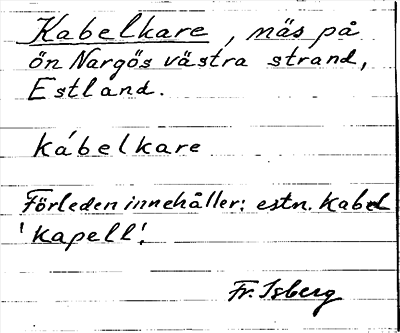 Kabelkare, näs på
ön Nargös västra strand,
Estland.
kábelkare
Förleden innehåller: estn. kabel
'kapell'.
Fr. Isberg